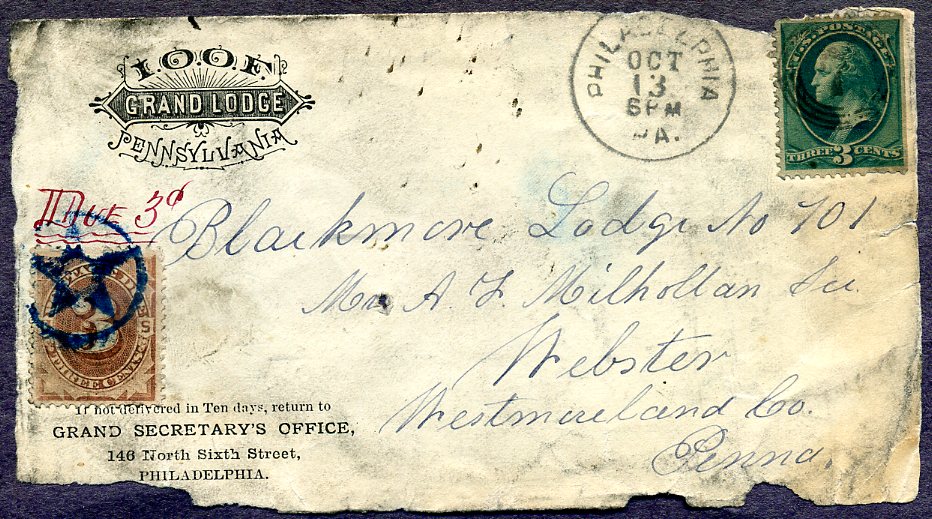 I.O.O.F.
GRAND LODGE
PENNSYLVANIA
PHILADELPHIA
OCT
13
6PM
PA.
U.S. POSTAGE
THREE 3 CENTS
DUE 3¢
Blackmore Lodge No 701
Mr A. F. Milhollan Sec.
Webster
Westmoreland Co.
Penna.
THREE CENTS
If not delivered in Ten days, return to
GRAND SECRETARY'S OFFICE,
146 North Sixth Street,
PHILADELPHIA.